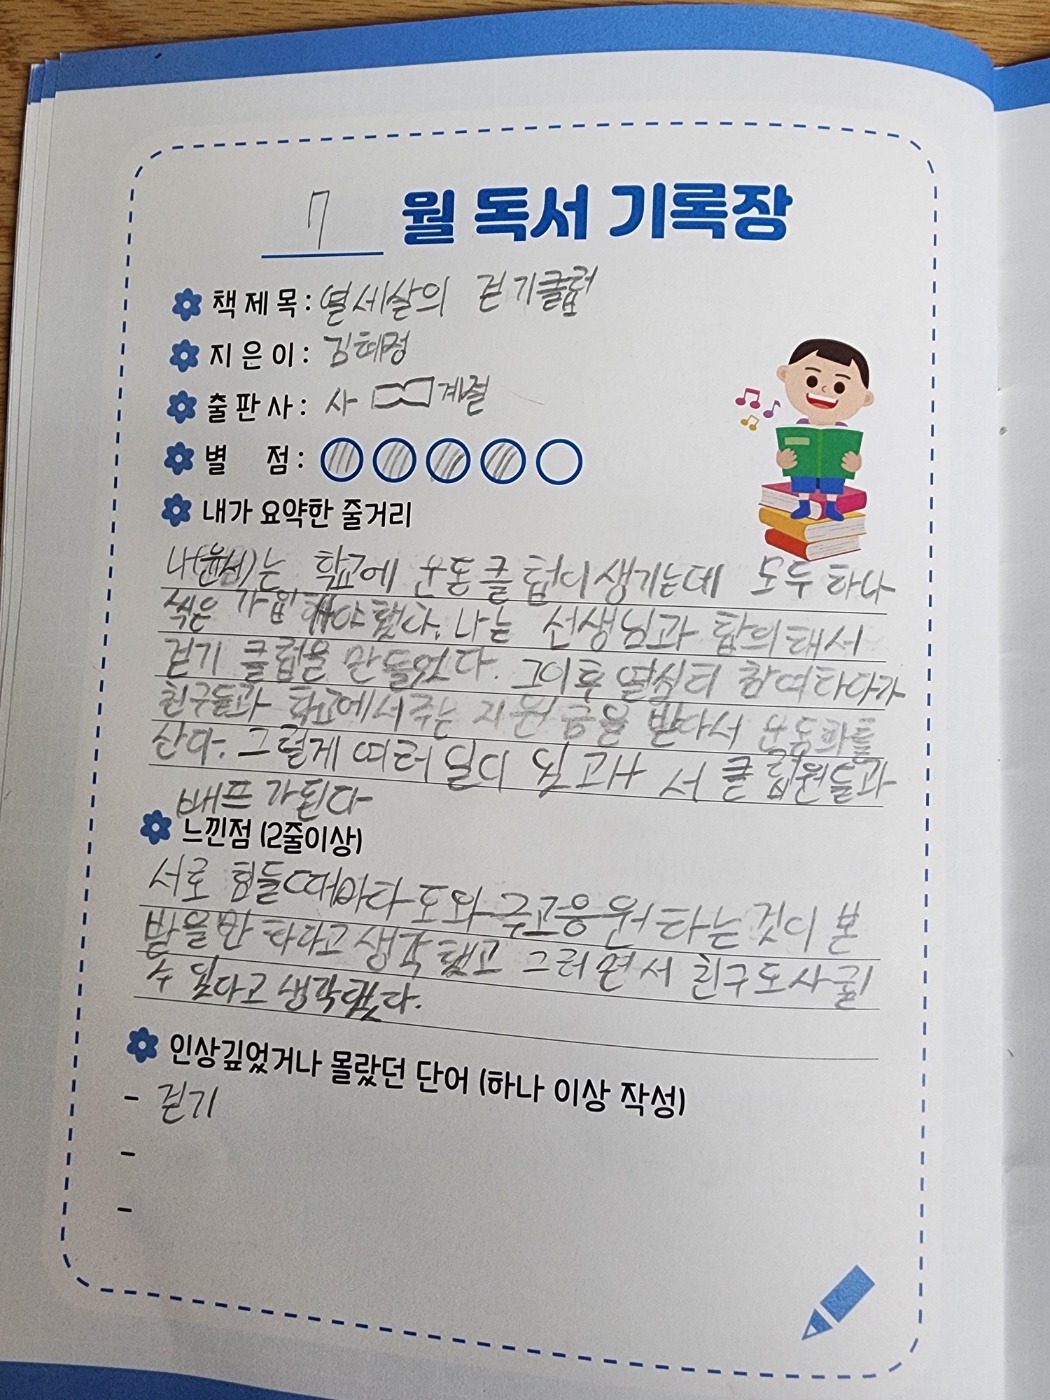 7 월 독서 기록장
책 제 목 : 열세살의 걷기클럽
지 은 이 : 김혜정
출 판 사 : 사 계절
별 점 :
내가 요약한 줄거리
나(윤서)는 학교에 운동클럽이 생기는데 모두 하나
씩은 가입해야 했다. 나는 선생님과 합의해서
걷기 클럽을 만들었다. 그이후 열심히 참여하다가
친구들과 학교에서 주는 지원금을 받아서 운동화를
산다. 그렇게 여러 일이 있고 나서 클럽원들과
베프 가된다
느낀점 (2줄이상)
서로 힘들때마다 도와주고 응원하는 것이 본
받을만 하다고 생각했고 그러면서 친구도 사귈
수 있다고 생각했다.
인상깊었거나 몰랐던 단어 (하나 이상 작성)
- 걷기
-
-